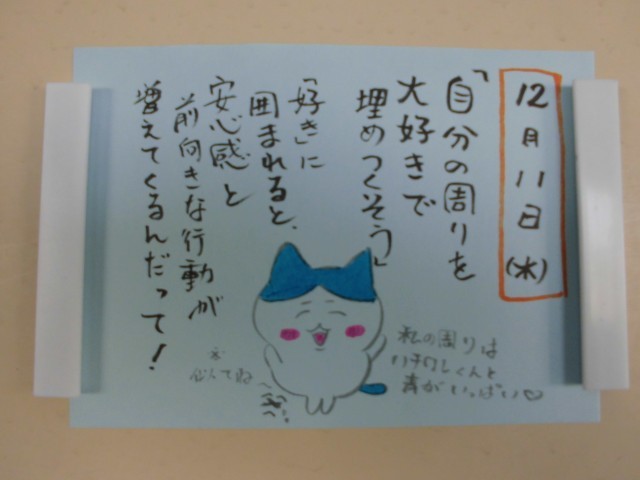 12月11日(水)
「自分の周りを
大好きで
埋めつくそう」
「好き」に
囲まれると、
安心感と
前向きな行動が
増えてくるんだって!
私の周りは
ハチワレくんと
青がいっぱい♡